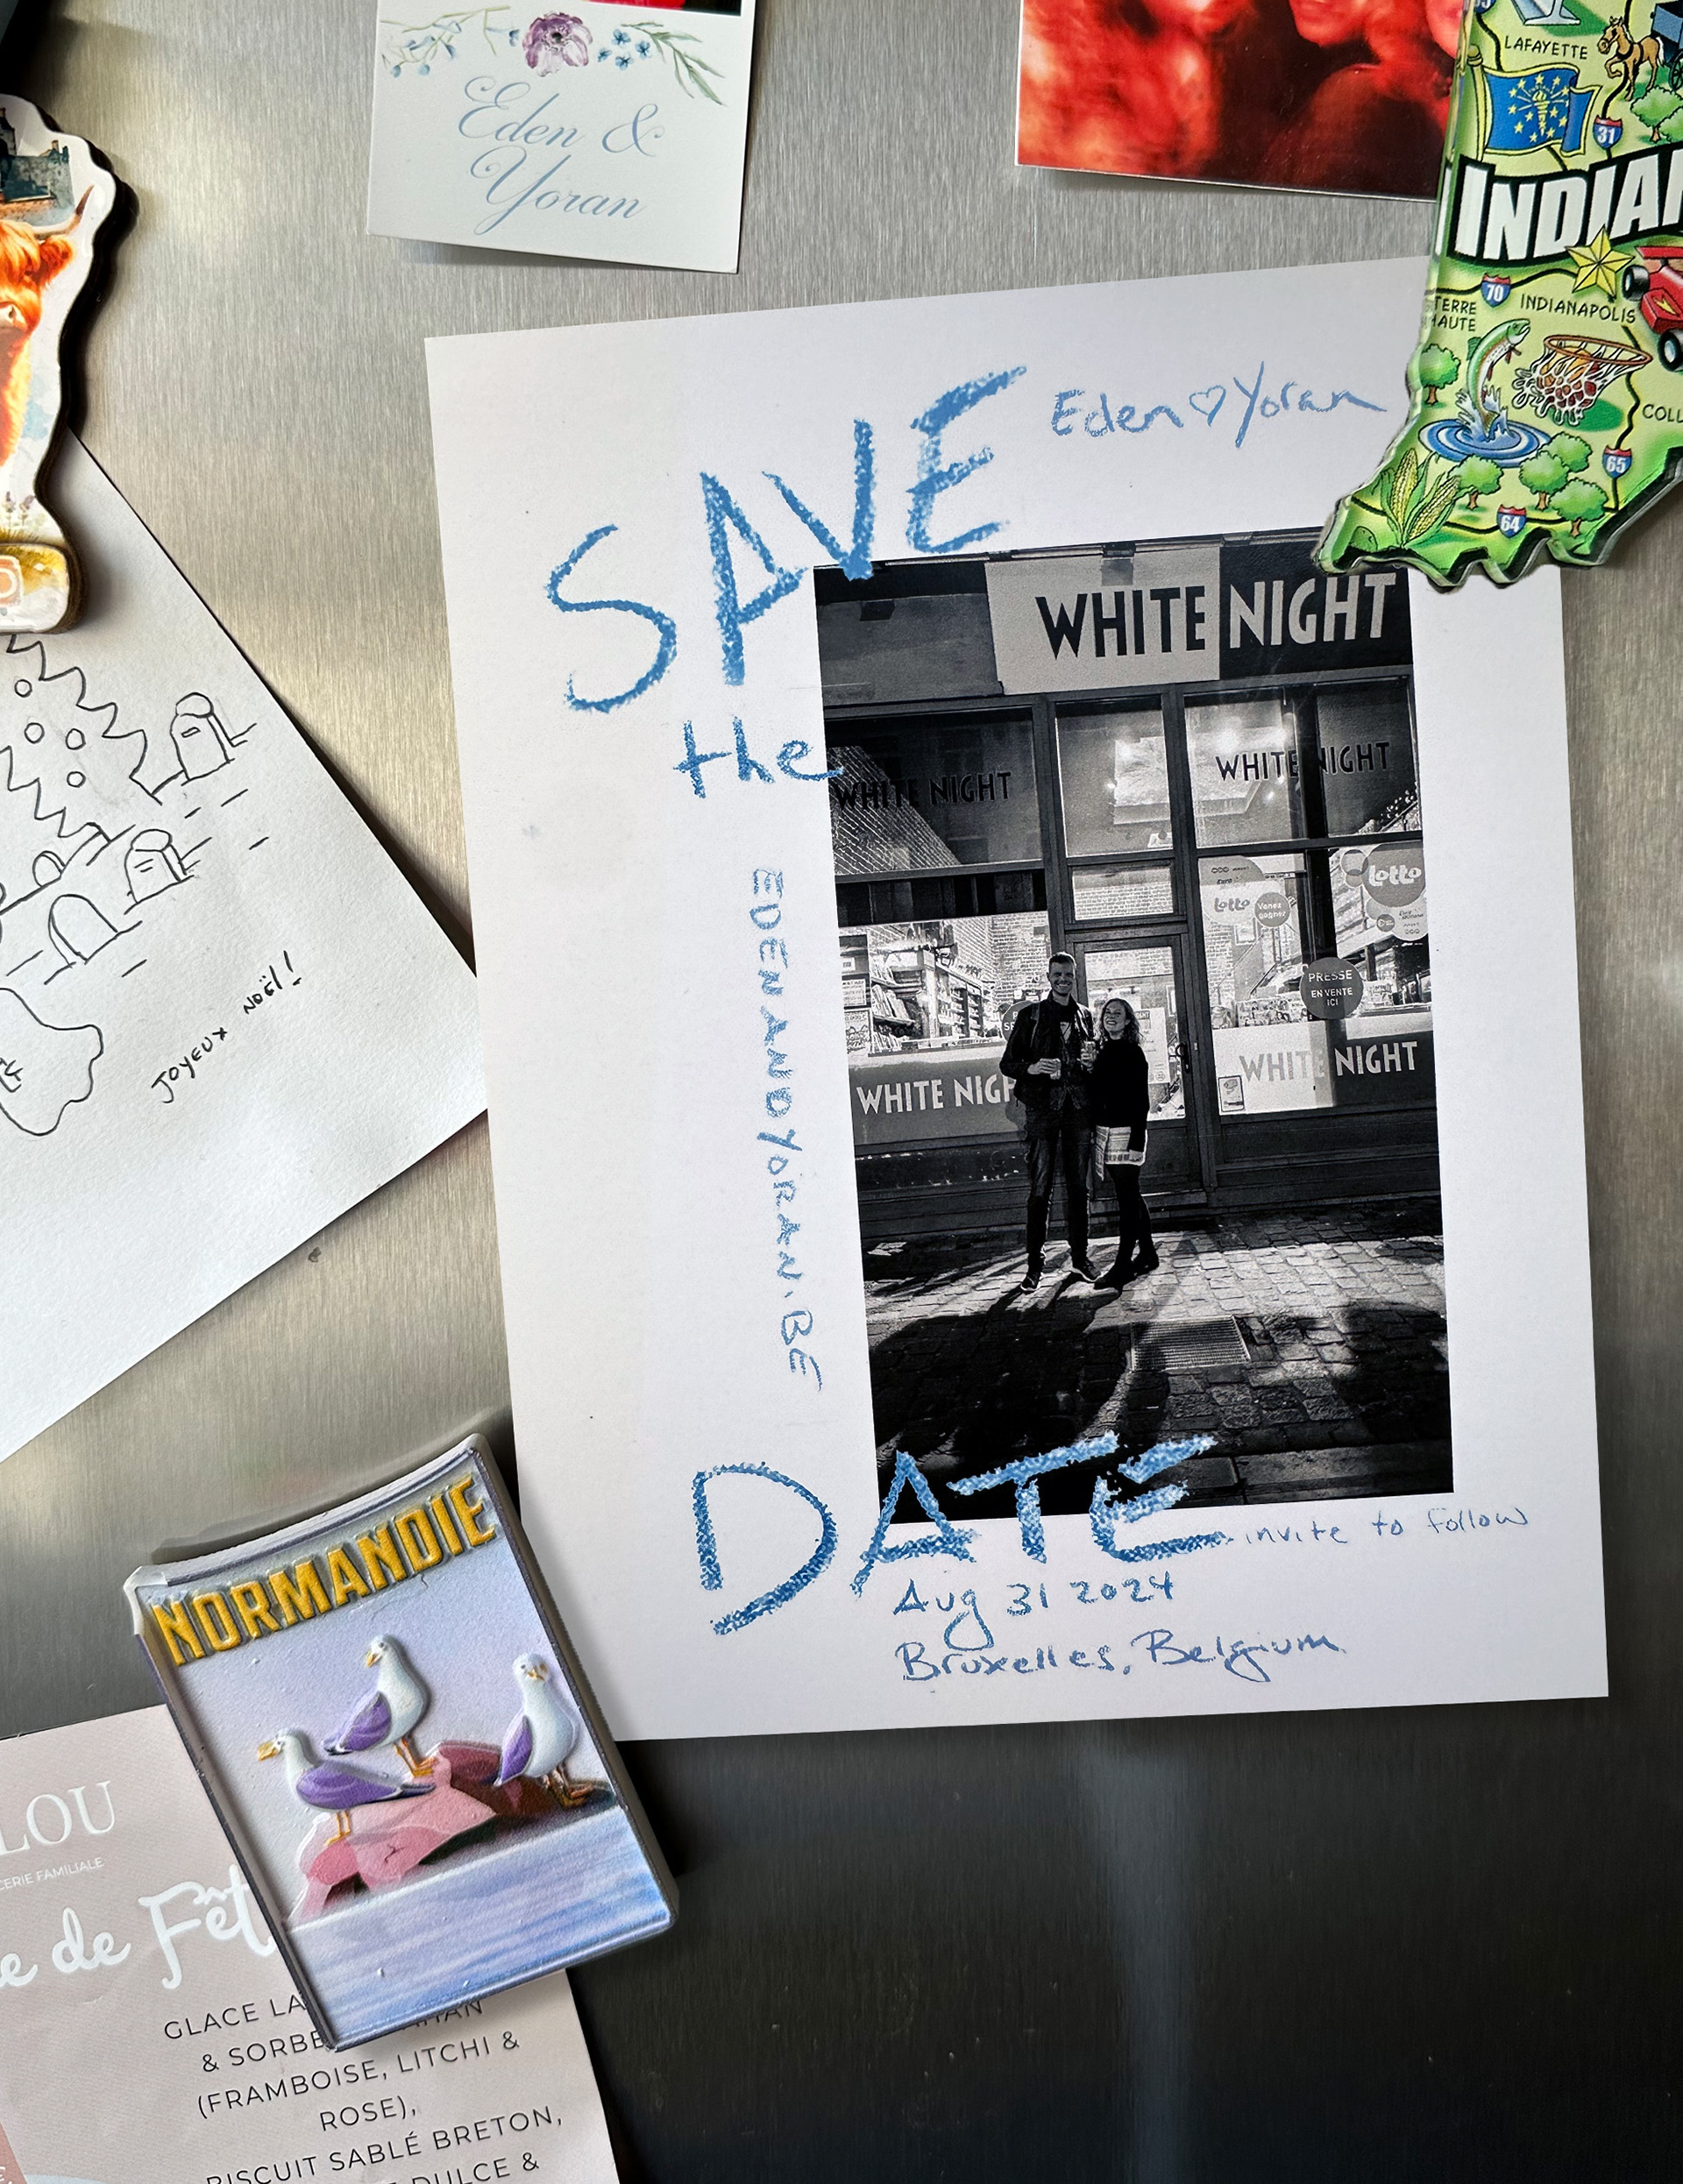 Eden &
Yoran
LAFAYETTE
31
INDIAN
70
TERRE
HAUTE
INDIANAPOLIS
65
64
Eden♡Yoran
SAVE
the
DATE
EDENANDYORAN.BE
WHITE NIGHT
WHITE NIGHT
WHITE NIGHT
Lotto
Lotto
Venez
gagner
PRESSE
EN VENTE
ICI
WHITE NIGH
WHITE NIGHT
invite to follow
Aug 31 2024
Bruxelles, Belgium
JOYEUX NOËL!
NORMANDIE
LOU
FAMILIALE
de Fêt
GLACE LA
& SORBE
(FRAMBOISE, LITCHI &
ROSE),
BISCUIT SABLÉ BRETON,
DULCE &